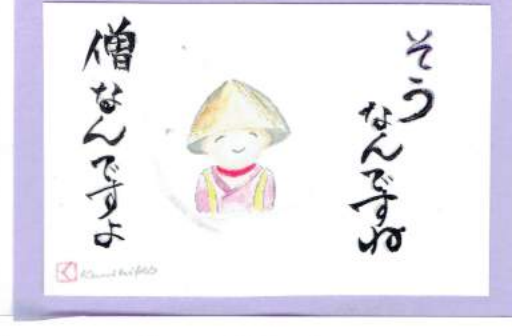 そう
なんですね
僧なんですよ